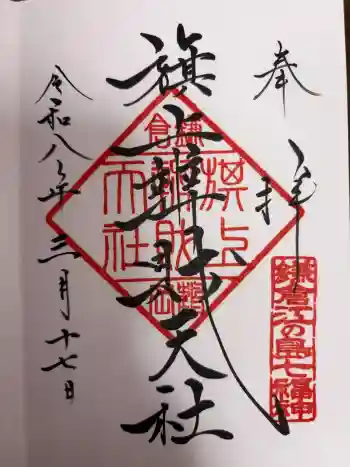 奉拝
旗上辨財天社
令和八年三月十七日
鎌倉
旗上
辨財
天社
鶴岡
鎌倉江の島七福神